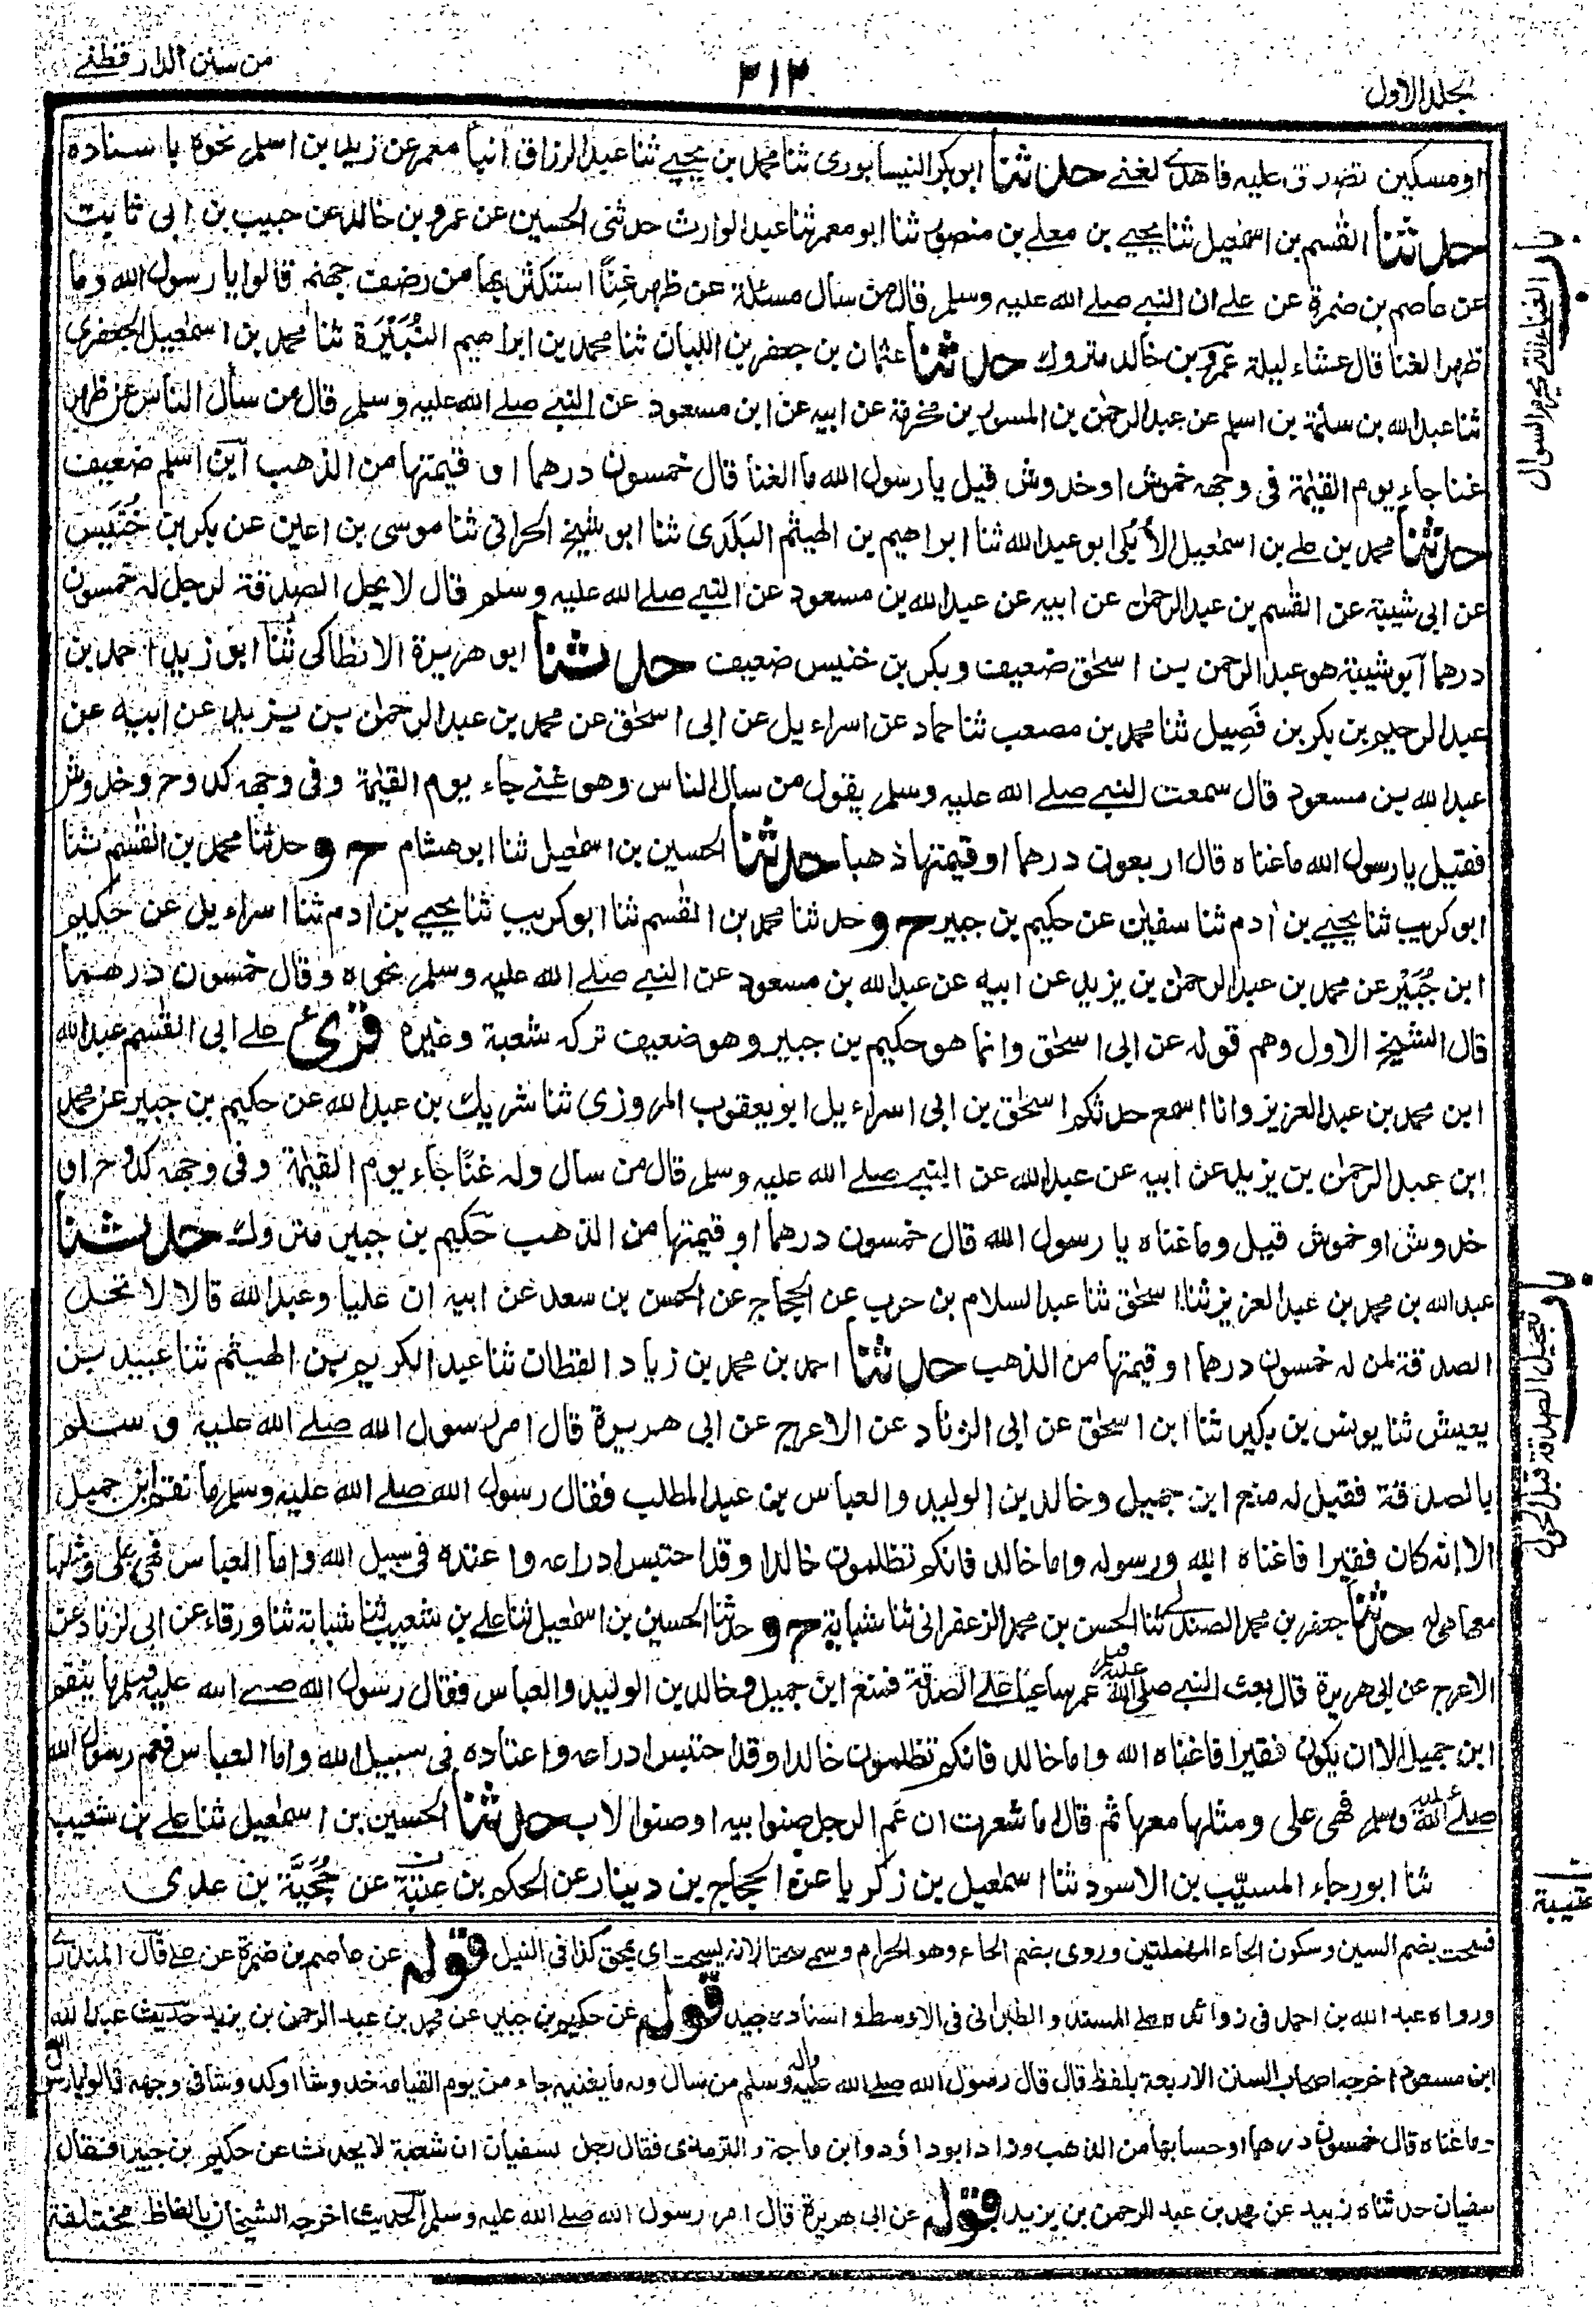 الجلد الاول
٢١٢
من سنن الدارقطنے
او مسكين تصدق عليه فاهدى لغنے حدثنا ابو بكر النيسابورى ثنا محمد بن يحيے ثنا عبد الرزاق انبأ معمر عن زيد بن اسلم نحوه باسناده
حدثنا القٰسم بن اسمٰعيل ثنا يحيے بن معلے بن منصور ثنا ابو معمر ثنا عبد الوارث حدثنى الحسين عن عمرو بن خالد عن حبيب بن ابى ثابت
عن عاصم بن ضمرة عن علے ان النبے صلے الله عليه وسلم قال من سأل مسئلة عن ظهر غِنًا استكثر بها من رضف جهنم قالوا يا رسول الله وما
ظهر الغنا قال عشاء ليلة عَمرو بن خالد متروك حدثنا عثمان بن جعفر بن اللبان ثنا محمد بن ابراهيم ثنا محمد بن اسمٰعيل الجعفرى
ثنا عبد الله بن سلمة بن اسلم عن عبد الرحمٰن بن المسور بن مخرمة عن ابيه عن ابن مسعود عن النبے صلے الله عليه وسلم قال من سأل الناس عن ظهر
غنا جاء يوم القيٰمة فى وجهه خموش او خدوش قيل يا رسول الله ما الغنا قال خمسون درهما او قيمتها من الذهب ابن اسلم ضعيف
حدثنا محمد بن علے بن اسمٰعيل الأُبُلى ابو عبد الله ثنا ابراهيم بن الهيثم البَلَدى ثنا ابو شيخ الحرانى ثنا موسى بن اعين عن بكر بن خُنَيس
عن ابى شيبة عن القٰسم بن عبد الرحمٰن عن ابيه عن عبد الله بن مسعود عن النبے صلے الله عليه وسلم قال لا يحل الصدقة لرجل له خمسون
درهما ابو شيبة هو عبد الرحمن بن اسحٰق ضعيف وبكر بن خنيس ضعيف حدثنا ابو هريرة الانطاكى ثنا ابو زيد احمد بن
عبد الرحيم بن بكر بن فَصِيل ثنا محمد بن مصعب ثنا حماد عن اسراءيل عن ابى اسحٰق عن محمد بن عبد الرحمٰن بن يزيد عن ابيه عن
عبد الله بن مسعود قال سمعت النبے صلے الله عليه وسلم يقول من سأل الناس وهو غنے جاء يوم القيٰمة وفى وجهه كدوح وخدوش
فقيل يا رسول الله ما غناه قال اربعون درهما او قيمتها ذهبا حدثنا الحسين بن اسمٰعيل ثنا ابو هشام ح و حدثنا محمد بن القٰسم ثنا
ابو كريب ثنا يحيے بن اٰدم ثنا سفيٰن عن حكيم بن جبير ح و حدثنا محمد بن القٰسم ثنا ابو كريب ثنا يحيے بن اٰدم ثنا اسراءيل عن حكيم
ابن جُبَيْر عن محمد بن عبد الرحمٰن بن يزيد عن ابيه عن عبد الله بن مسعود عن النبے صلے الله عليه وسلم نحوه وقال خمسون درهما
قال الشيخ الاول وهم قوله عن ابى اسحٰق وانما هو حكيم بن جبير وهو ضعيف تركه شعبة وغيره قرئ علے ابى القٰسم عبد الله
ابن محمد بن عبد العزيز وانا اسمع حدثكم اسحٰق بن ابى اسراءيل ابو يعقوب المروزى ثنا شريك بن عبد الله عن حكيم بن جبير عن محمد
ابن عبد الرحمٰن بن يزيد عن ابيه عن عبد الله عن النبے صلے الله عليه وسلم قال من سأل وله غنًا جاء يوم القيٰمة وفى وجهه كدوح او
خدوش او خموش قيل وما غناه يا رسول الله قال خمسون درهما او قيمتها من الذهب حكيم بن جبير متروك حدثنا
عبد الله بن محمد بن عبد العزيز ثنا اسحٰق ثنا عبد السلام بن حرب عن الحجاج عن الحسن بن سعد عن ابيه ان عليا وعبد الله قالا لا تحل
الصدقة لمن له خمسون درهما او قيمتها من الذهب حدثنا احمد بن محمد بن زياد القطان ثنا عبد الكريم بن الهيثم ثنا عبيد بن
يعيش ثنا يونس بن بكير ثنا ابن اسحٰق عن ابى الزناد عن الاعرج عن ابى هريرة قال امر رسول الله صلے الله عليه وسلم
بالصدقة فقيل له منع ابن جميل وخالد بن الوليد والعباس بن عبد المطلب فقال رسول الله صلے الله عليه وسلم ما نقم ابن جميل
الا انه كان فقيرا فاغناه الله ورسوله واما خالد فانكم تظلمون خالدا وقد احتبس ادراعه واعتده فى سبيل الله واما العباس فهى على ومثلها
معها هى له حدثنا جعفر بن محمد الصندلى ثنا الحسن بن محمد الزعفرانى ثنا شبابة ح و حدثنا الحسين بن اسمٰعيل ثنا علے بن شعيب ثنا شبابة ثنا ورقاء عن ابى الزناد عن
الاعرج عن ابى هريرة قال بعث النبے صلى الله عليه وسلم عمر ساعيا على الصدقة فمنع ابن جميل وخالد بن الوليد والعباس فقال رسول الله صلے الله عليه وسلم ما ينقم
ابن جميل الا ان يكون فقيرا فاغناه الله واما خالد فانكم تظلمون خالدا وقد احتبس ادراعه واعتاده فى سبيل الله واما العباس فعم رسول الله
صلے الله عليه وسلم فهى على ومثلها معها ثم قال اما شعرت ان عم الرجل صنو ابيه او صنو الاب حدثنا الحسين بن اسمٰعيل ثنا علے بن شعيب
ثنا ابو رجاء المسيّب بن الاسود ثنا اسمٰعيل بن زكريا عن الحجاج بن دينار عن الحكم بن عتيبة عن حُجَيَّة بن عدى
فسحت بضم السين وسكون الحاء المهملتين وروى بضم الحاء وهو الحرام وسمى سحتا لانه يسحت اى يمحق كذا فى النيل قوله عن عاصم بن ضمرة عن علے قال المنذرى
ورواه عبد الله بن احمد فى زوائده على المسند والطبرانى فى الاوسط واسناده جيد قوله عن حكيم بن جبير عن محمد بن عبد الرحمن بن يزيد حديث عبد الله
ابن مسعود اخرجه اصحاب السنن الاربعة بلفظ قال قال رسول الله صلے الله عليه واله وسلم من سأل وله ما يغنيه جاءت يوم القيامة خدوشا او كدوشا فى وجهه قالوا يا رسول الله
وما غناه قال خمسون درهما او حسابها من الذهب وزاد ابو داؤد وابن ماجة والترمذى فقال رجل لسفيان ان شعبة لا يحدث عن حكيم بن جبير فقال
سفيان حدثناه زبيد عن محمد بن عبد الرحمن بن يزيد قوله عن ابى هريرة قال امر رسول الله صلے الله عليه وسلم الحديث اخرجه الشيخان بالفاظ مختلفة
باب الغنا التى يحرم السوال
باب تعجيل الصدقة قبل الحول
عتيبة